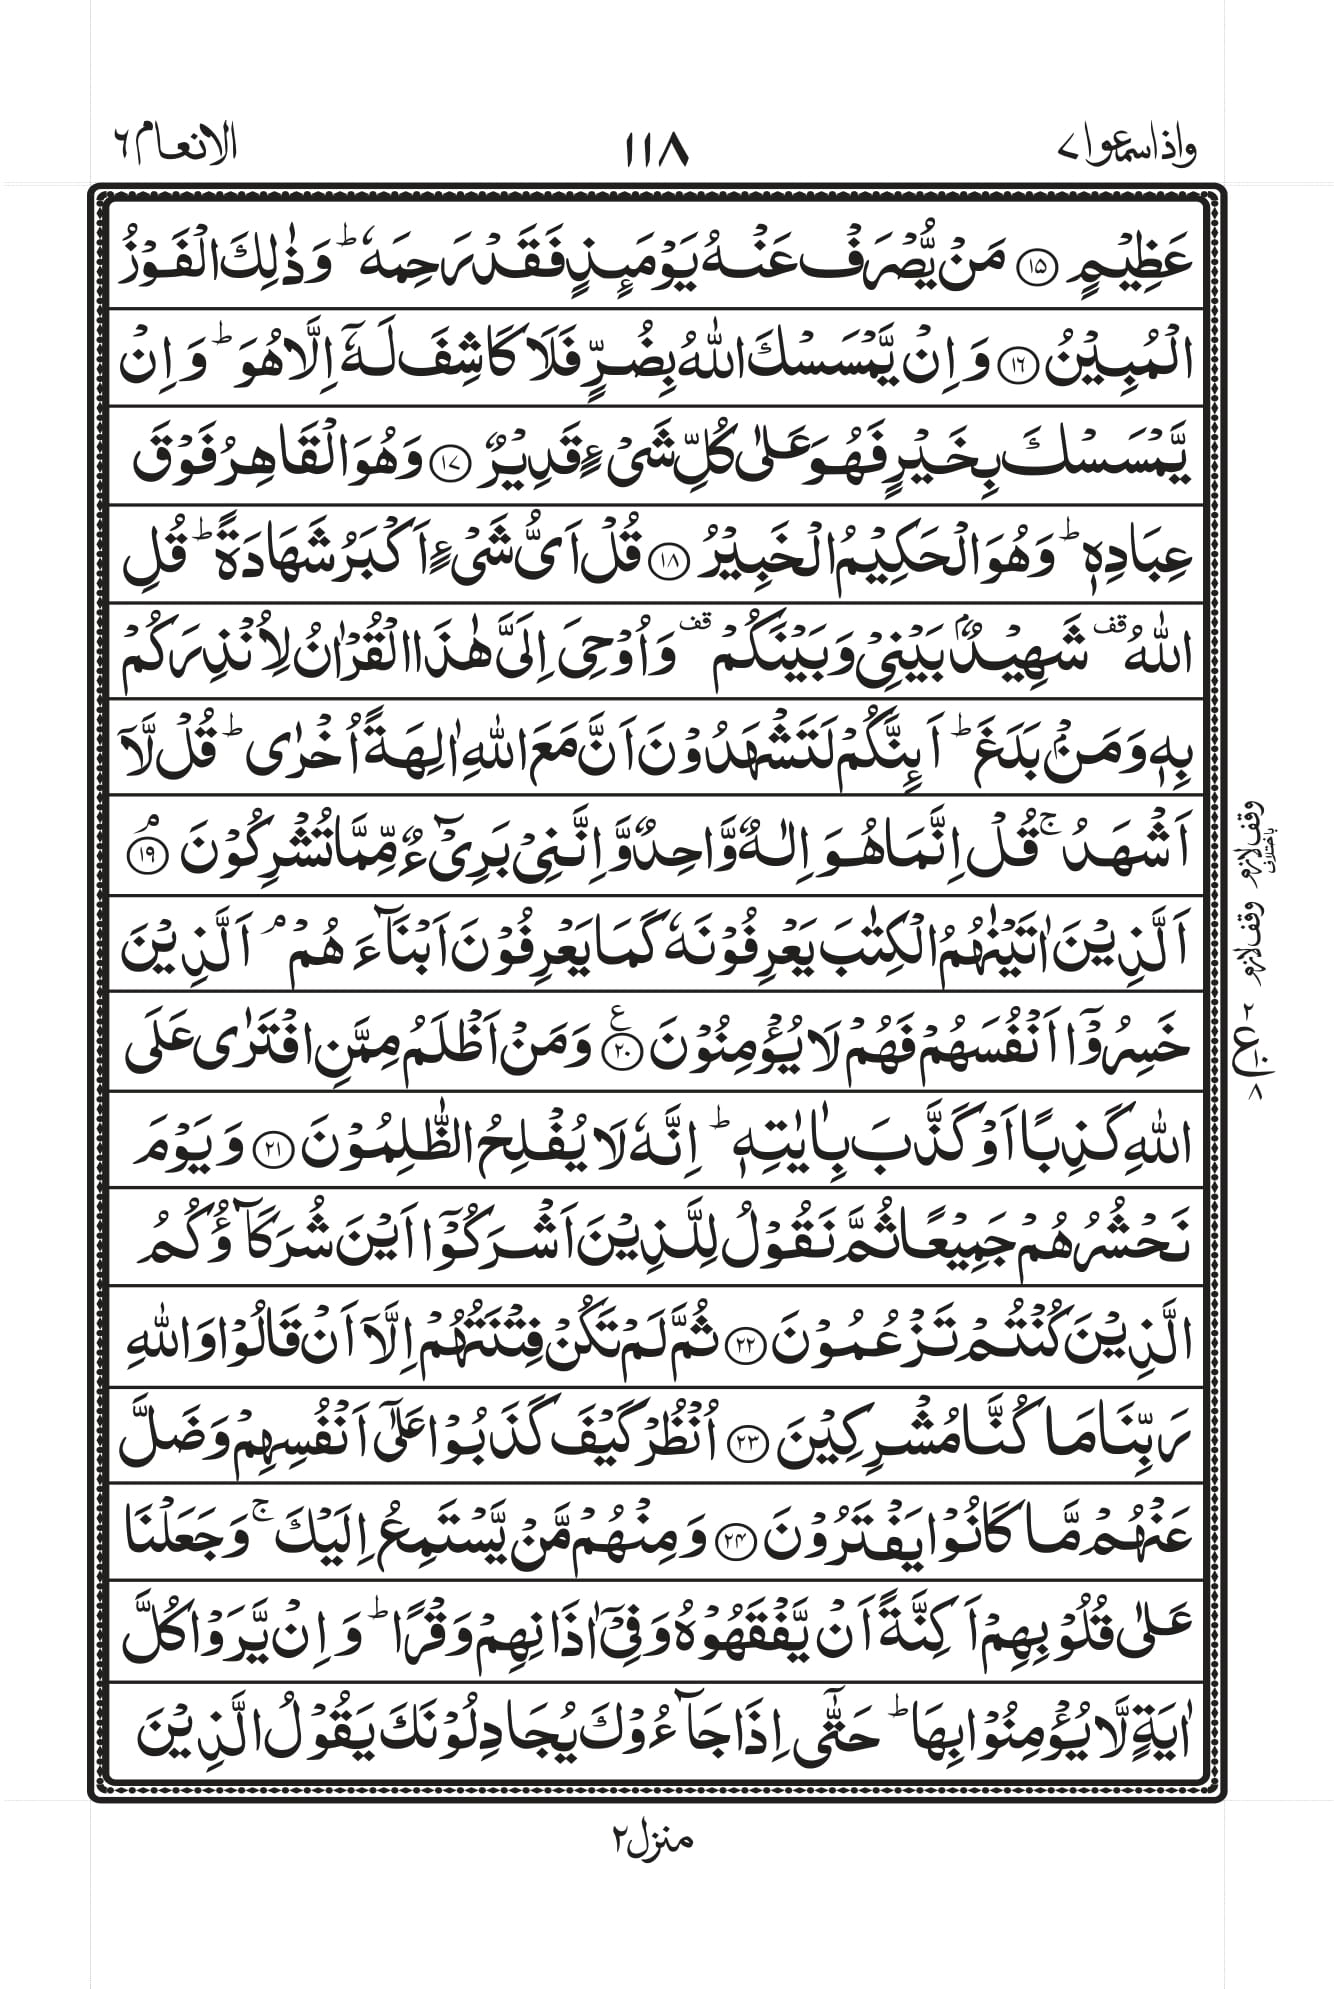 واذاسمعوا ۷ ۱۱۸ الانعام ۶
عَظِيۡمٍ ‏﴿۱۵﴾‏ مَنۡ يُّصۡرَفۡ عَنۡهُ يَوۡمَٮِٕذٍ فَقَدۡ رَحِمَهٗ‌ ؕ وَ ذٰ لِكَ الۡفَوۡزُ
الۡمُبِيۡنُ‏ ﴿۱۶﴾‏ وَاِنۡ يَّمۡسَسۡكَ اللّٰهُ بِضُرٍّ فَلَا كَاشِفَ لَهٗۤ اِلَّا هُوَ‌ؕ وَاِنۡ
يَّمۡسَسۡكَ بِخَيۡرٍ فَهُوَ عَلٰى كُلِّ شَىۡءٍ قَدِيۡرٌ‏ ﴿۱۷﴾‏ وَهُوَ الۡقَاهِرُ فَوۡقَ
عِبَادِهٖ‌ ؕ وَهُوَ الۡحَكِيۡمُ الۡخَبِيۡرُ‏ ﴿۱۸﴾‏ قُلۡ اَىُّ شَىۡءٍ اَكۡبَرُ شَهَادَةً‌  ؕ قُلِ
اللّٰهُ ‌ۙقف شَهِيۡدٌ ۢ بَيۡنِىۡ وَبَيۡنَكُمۡ‌ قف وَاُوۡحِىَ اِلَىَّ هٰذَا الۡقُرۡاٰنُ لِاُنۡذِرَكُمۡ
بِهٖ وَمَنۡۢ بَلَغَ‌ ؕ اَٮِٕنَّكُمۡ لَتَشۡهَدُوۡنَ اَنَّ مَعَ اللّٰهِ اٰلِهَةً اُخۡرٰى‌ ؕ قُلْ لَّاۤ
اَشۡهَدُ‌ ۚ قُلۡ اِنَّمَا هُوَ اِلٰـهٌ وَّاحِدٌ وَّاِنَّنِىۡ بَرِىۡٓءٌ مِّمَّا تُشۡرِكُوۡنَ‌ۘ‏ ﴿۱۹﴾‏
اَ لَّذِيۡنَ اٰتَيۡنٰهُمُ الۡكِتٰبَ يَعۡرِفُوۡنَهٗ كَمَا يَعۡرِفُوۡنَ اَبۡنَآءَهُمۡ‌ۘ اَ لَّذِيۡنَ
خَسِرُوۡۤا اَنۡفُسَهُمۡ فَهُمۡ لَا يُؤۡمِنُوۡنَ‏ ﴿۲۰﴾‏ ع وَمَنۡ اَظۡلَمُ مِمَّنِ افۡتَرٰى عَلَى
اللّٰهِ كَذِبًا اَوۡ كَذَّبَ بِاٰيٰتِهٖؕ اِنَّهٗ لَا يُفۡلِحُ الظّٰلِمُوۡنَ‏ ﴿۲۱﴾‏ وَيَوۡمَ
نَحۡشُرُهُمۡ جَمِيۡعًا ثُمَّ نَقُوۡلُ لِلَّذِيۡنَ اَشۡرَكُوۡۤا اَيۡنَ شُرَكَآؤُكُمُ
الَّذِيۡنَ كُنۡتُمۡ تَزۡعُمُوۡنَ‏ ﴿۲۲﴾‏ ثُمَّ لَمۡ تَكُنۡ فِتۡنَـتُهُمۡ اِلَّاۤ اَنۡ قَالُوۡا وَاللّٰهِ
رَبِّنَا مَا كُنَّا مُشۡرِكِيۡنَ‏ ﴿۲۳﴾‏ اُنْظُرۡ كَيۡفَ كَذَبُوۡا عَلٰٓى اَنۡفُسِهِمۡ‌ وَضَلَّ
عَنۡهُمۡ مَّا كَانُوۡا يَفۡتَرُوۡنَ‏ ﴿۲۴﴾‏ وَمِنۡهُمۡ مَّنۡ يَّسۡتَمِعُ اِلَيۡكَ‌‌ ۚ وَجَعَلۡنَا
عَلٰى قُلُوۡبِهِمۡ اَكِنَّةً اَنۡ يَّفۡقَهُوۡهُ وَفِىۡۤ اٰذَانِهِمۡ وَقۡرًا‌ ؕ وَاِنۡ يَّرَوۡا كُلَّ
اٰيَةٍ لَّا يُؤۡمِنُوۡا بِهَا‌ ؕ حَتّٰۤى اِذَا جَآءُوۡكَ يُجَادِلُوۡنَكَ يَقُوۡلُ الَّذِيۡنَ
وقف لازم باختلاف
وقف لازم
۲ ع ۸
منزل ۲